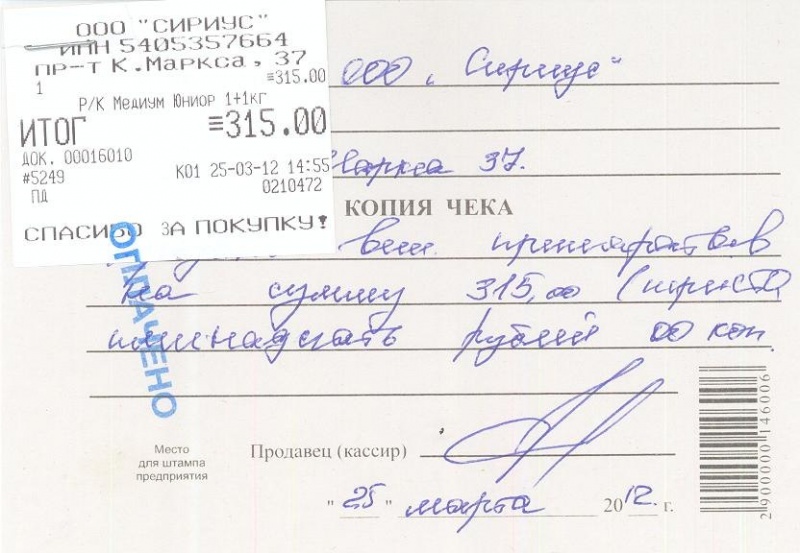 ООО "СИРИУС"
ИНН 5405357664
ПР-Т К.МАРКСА, 37
1 ≡315.00
Р/К МЕДИУМ ЮНИОР 1+1КГ
ИТОГ ≡315.00
ДОК. 00016010
#5249 К01 25-03-12 14:55
ПД 0210472
СПАСИБО ЗА ПОКУПКУ!
ООО „Сириус"
Маркса 37.
КОПИЯ ЧЕКА
вет. препаратов
На сумму 315,00 (триста
пятнадцать рублей 00 коп.
ОПЛАЧЕНО
Место
для штампа
предприятия
Продавец (кассир)
"25" марта 2012. г.
2900000146006